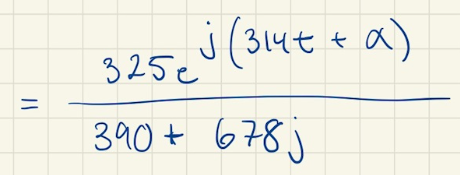 325e^{j(314t + α)}
=
390 + 678j